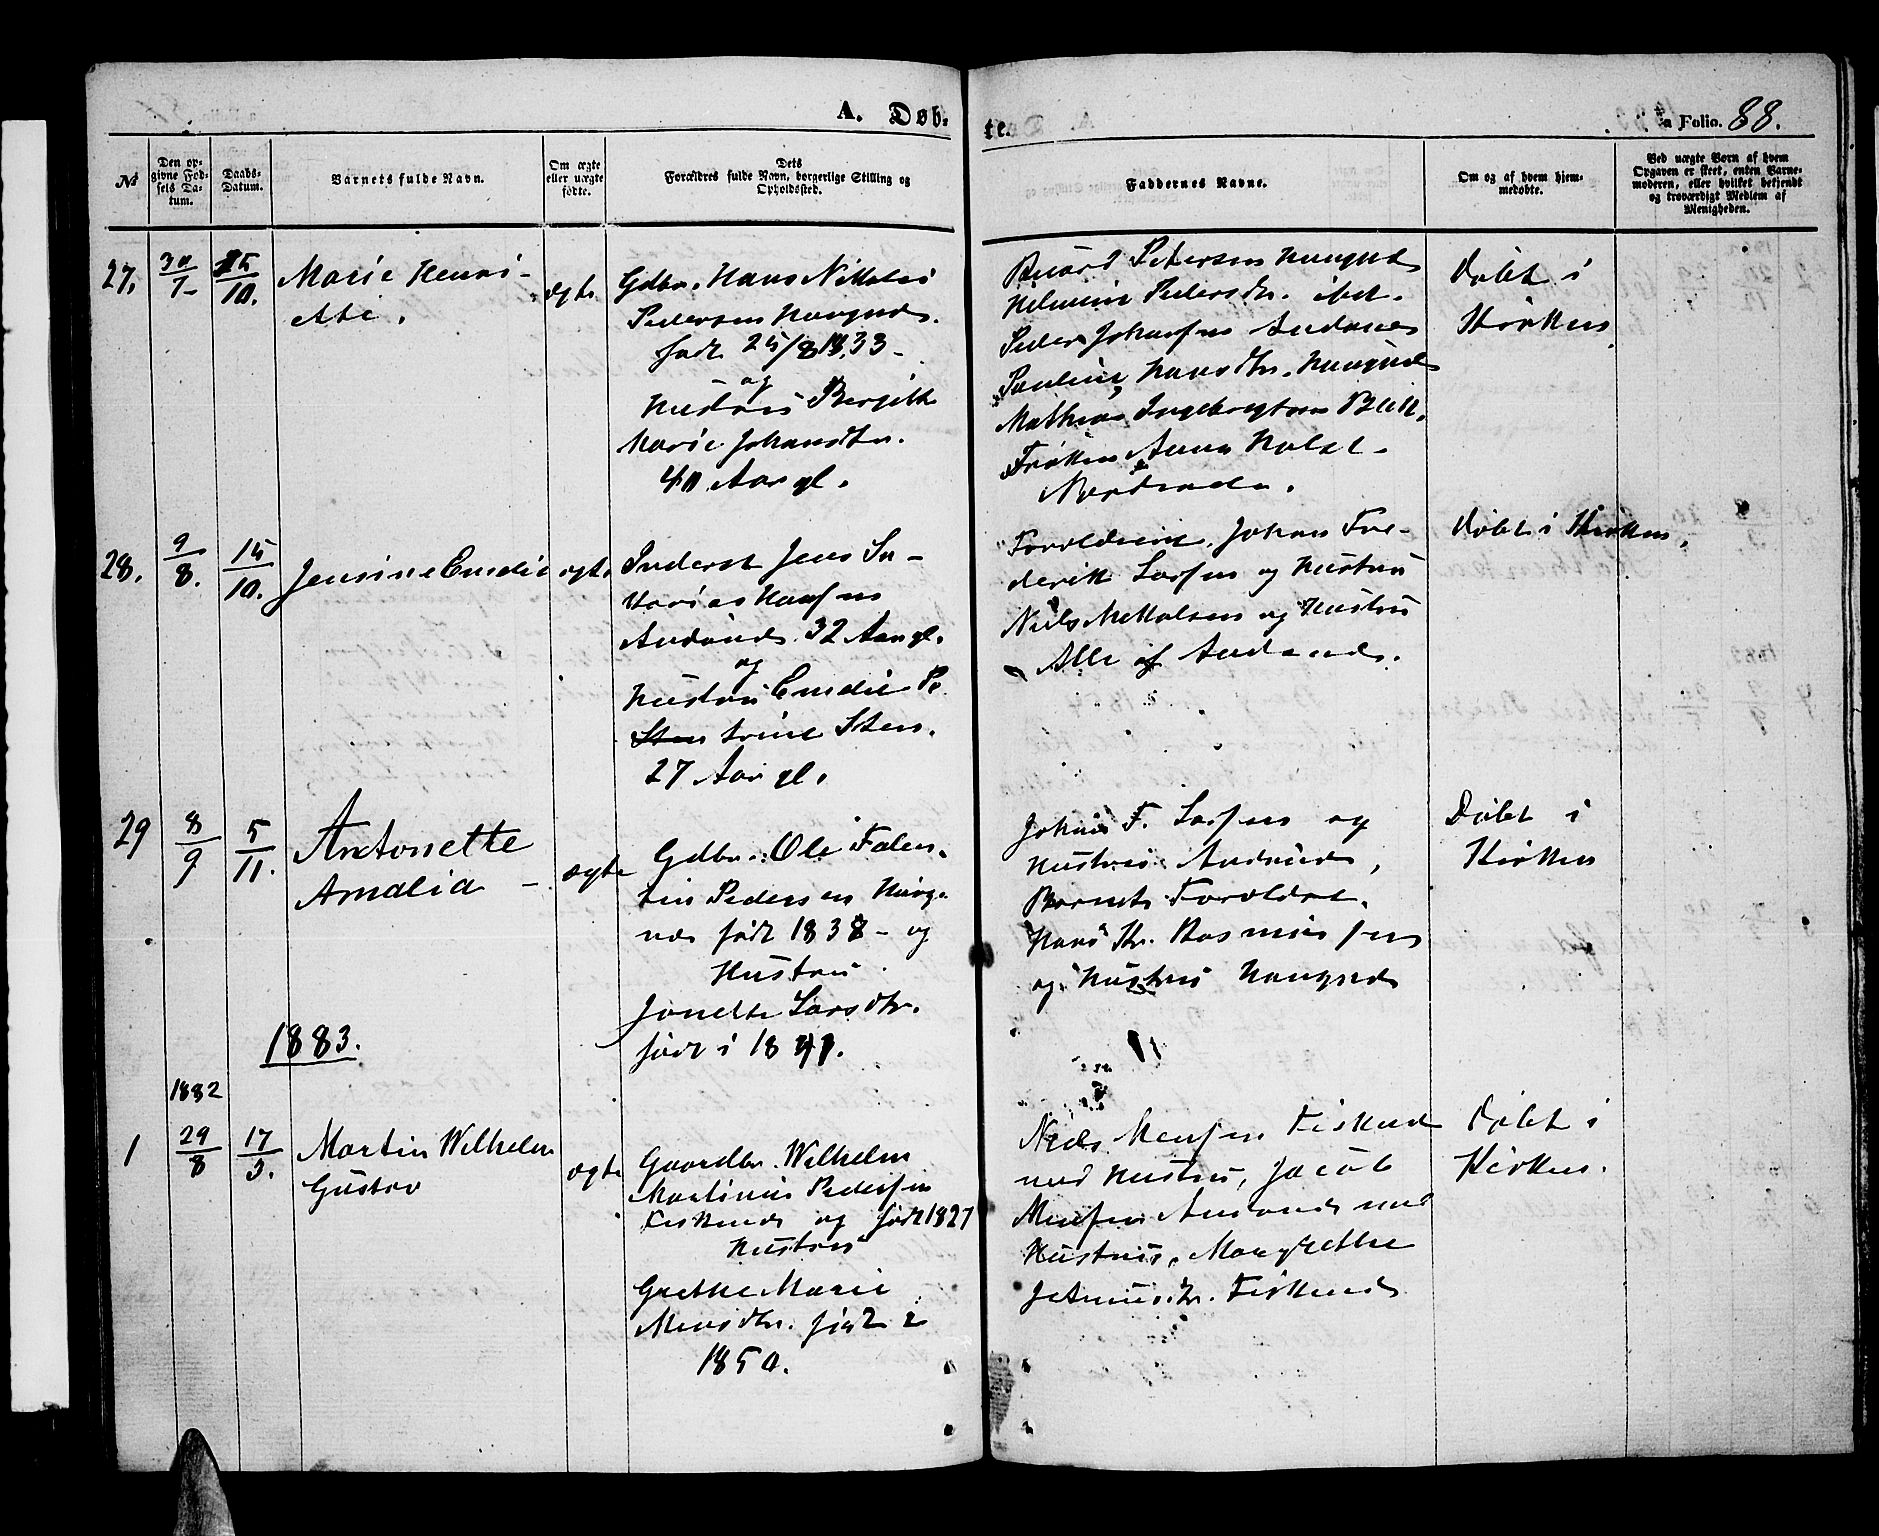 A. Døb-
te.
a Folio. 88.
№
Den opgivne Fødsels Datum.
Daabs-Datum.
Barnets fulde Navn.
Om ægte eller uægte fødte.
Dets Forældres fulde Navn, borgerlige Stilling og Opholdssted.
Faddernes Navne.
Om og af hvem hjemmedøbte.
Ved uægte Børn af hvem Opgaven er skeet, enten Barnemoderen, eller hvilket bekjendt og troværdigt Medlem af Menigheden.
27.
15/10.
Marie Henri-
ette.
ægte
Gdbr. Hans Nikolai
Pedersen
født 25/8 1833 -
og
Hustru Bergitte
Marie Johansdtr.
40 Aar gl.
Petersen
Pedersdtr. ibd.
Peder Johansen
Pauline Hansdtr.
Mathias Ingebrigtsen
Frøken Anna Holst
Døbt i
Kirken
28.
9/8.
15/10.
Jensine Emelie
ægte
Inderst Jens
Hansen
32 Aar gl.
og
Hustru Emelie Pe
trine Sten.
27 Aar gl.
Forældrene, Johan Fre-
derik Larsen og Hustru
Niels Mikkalsen og Hustru
Alle af
Døbt i Kirken.
29
8/9
5/11.
Antonette
Amalia -
ægte
Gdbr. Ole Falen-
tin Pedersen
født 1838 - og
Hustru
Jonette Larsdtr.
født i 1841.
Johan F. Larsen og
Hustru
Barnets Forældre.
Hans Kr. Rasmussen
og Hustru
Døbt i
Kirken
1883.
1882
1
29/8
17/3.
Martin Wilhelm
Gustav
ægte
Gaardbr. Wilhelm
Martinus Pedersen
og født 1827
Hustru
Grethe Marie
Mensdtr. født i
1850.
Niels Mensen
med Hustru, Jacob
Mensen med
Hustru, Margrethe
Døbt i
Kirken.